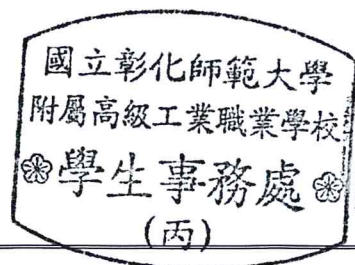 國立彰化師範大學
附屬高級工業職業學校
學生事務處
(丙)